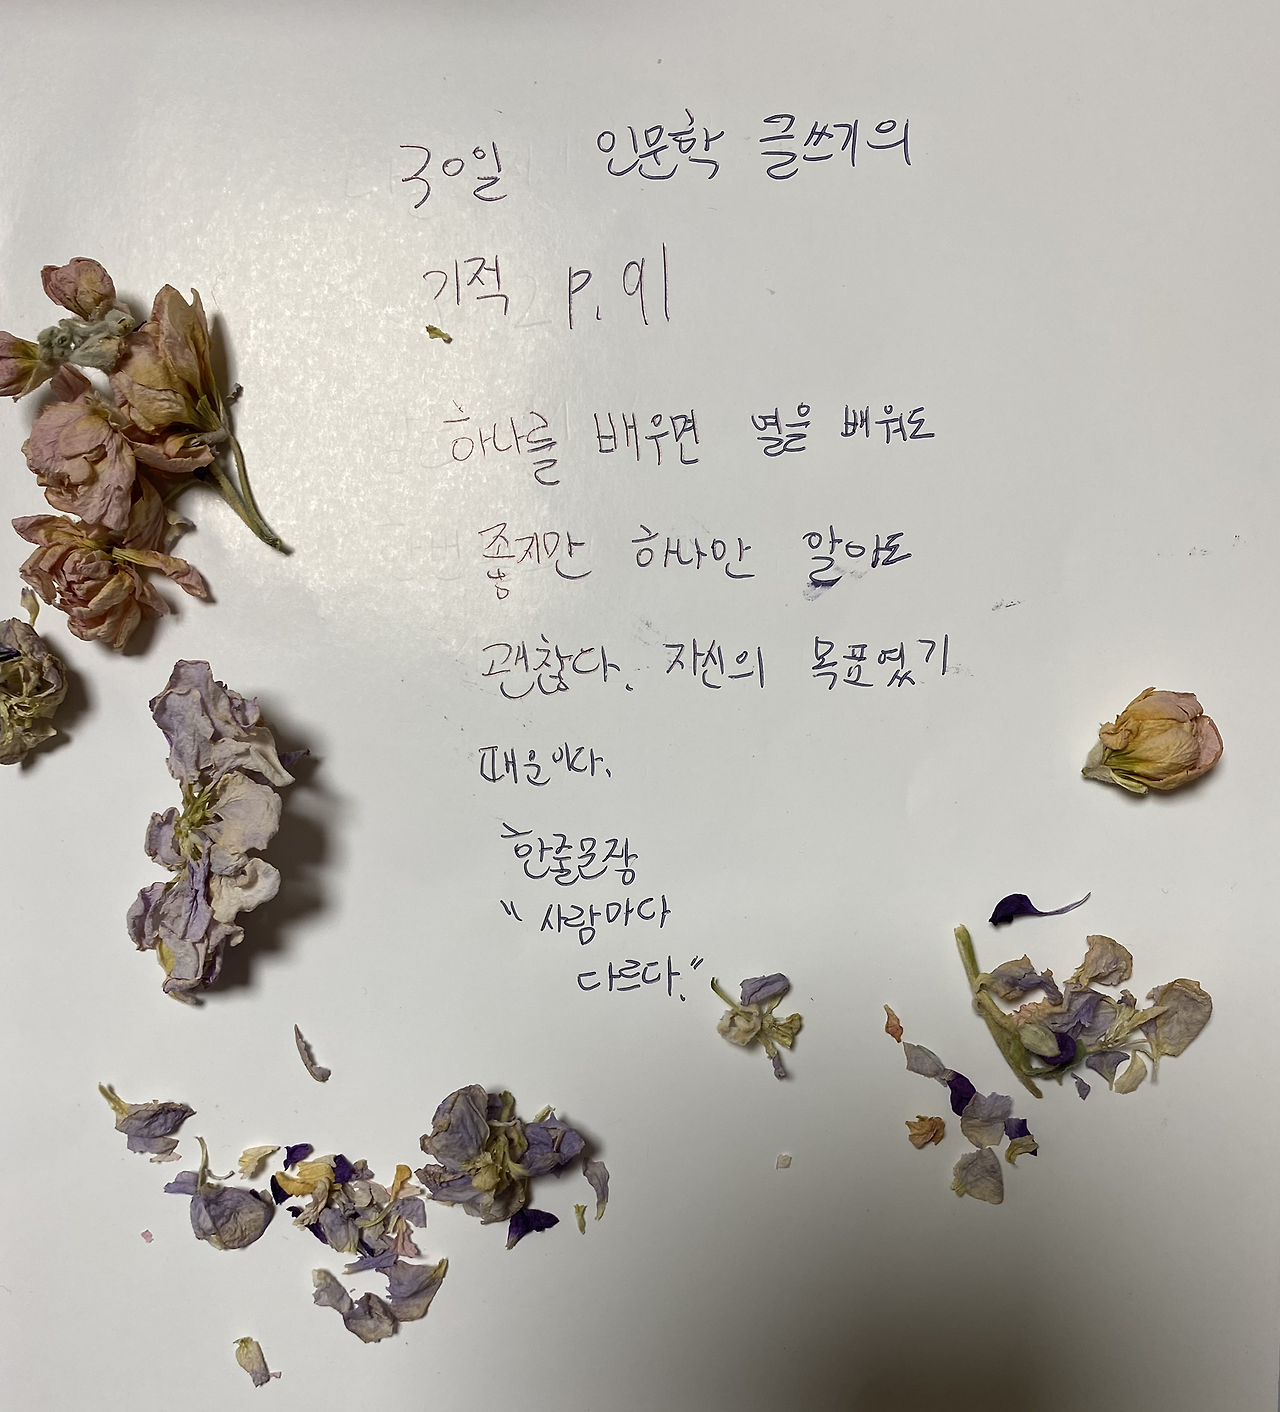 30일 인문학 글쓰기의
기적 p.91
하나를 배우면 열을 배워도
좋지만 하나만 알아도
괜찮다. 자신의 목표였기
때문이다.
한줄문장
"사람마다
다르다."